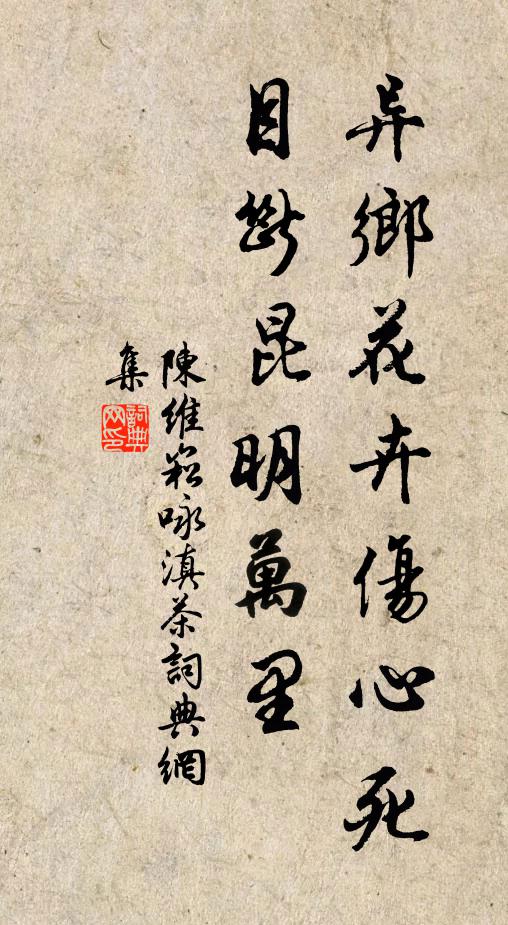 异鄉花卉傷心死
目斷昆明萬里
陳維崧咏滇茶詞典網
集
詞典網印